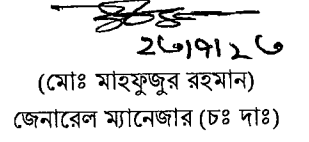 ২৩/৭/২৩
(মোঃ মাহফুজুর রহমান)
জেনারেল ম্যানেজার (চঃ দাঃ)